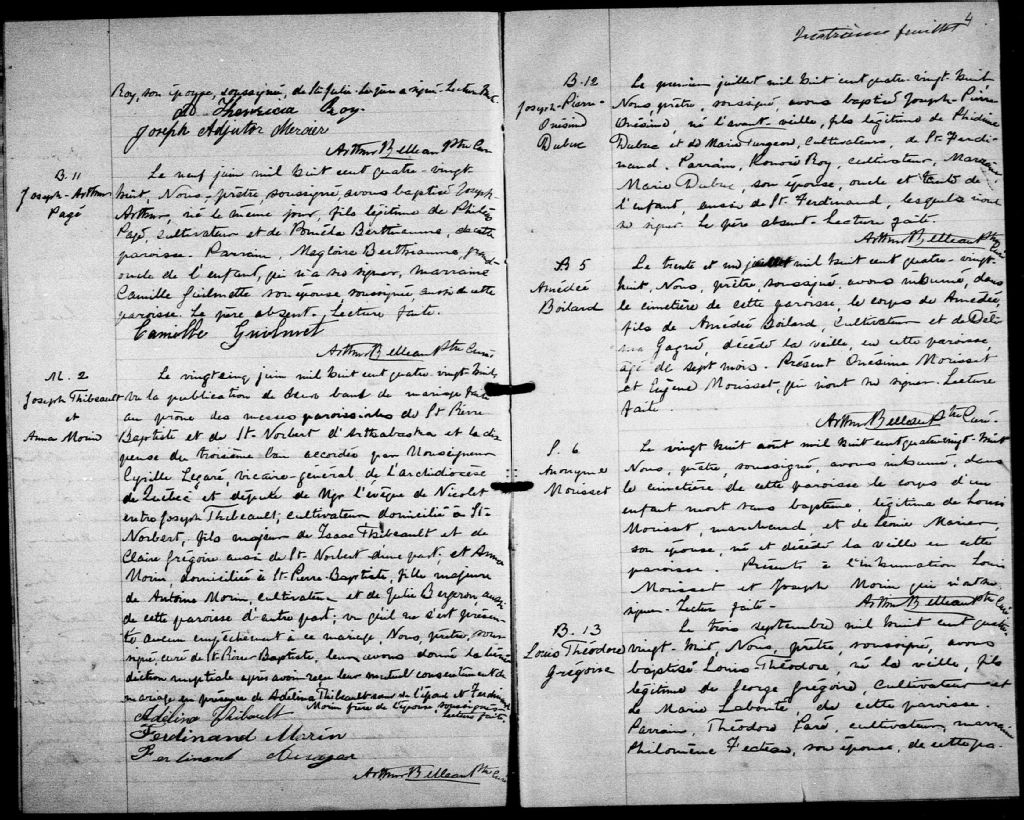 Roy, son épouse, soussigné, de Ste Julie. Le père a signé. Lecture faite.
Roy
Joseph Adjutor Mercier
Arthur Belleau Ptre Curé
B. 11
Joseph-Arthur
Pagé
Le neuf juin mil huit cent quatre-vingt
huit, Nous, prêtre, soussigné, avons baptisé Joseph
Arthur, né le même jour, fils légitime de
Pagé, cultivateur et de Berthiaume, de cette
paroisse. Parrain, Magloire Berthiaume, grand-
oncle de l'enfant, qui n'a su signer, marraine
Camille Guilmette son épouse, soussignée, aussi de cette
paroisse. Le père absent. Lecture faite.
Camille Guilmet
Arthur Belleau Ptre Curé
M. 2
Joseph Thibeault
et
Anna Morin
Le vingt cinq juin mil huit cent quatre-vingt huit,
Vu la publication de deux bans de mariage faite
au prône des messes paroissiales de St Pierre
Baptiste et de St-Norbert d'Arthabaska et la dis
pense du troisième ban accordée par Monseigneur
Cyrille Legaré, vicaire-général de l'archidiocèse
de Québec et député de Mgr l'évêque de Nicolet
entre Joseph Thibeault, cultivateur domicilié à St-
Norbert, fils majeur de Isaac Thibeault et de
Claire Grégoire aussi de St-Norbert d'une part, et Anna
Morin, domiciliée à St-Pierre-Baptiste, fille majeure
de Antoine Morin, cultivateur et de Julie Bergeron aussi
de cette paroisse d'autre part; vu qu'il ne s'est présen-
té aucun empêchement à ce mariage, Nous, prêtre, sous-
signé, curé de St-Pierre-Baptiste, leur avons donné la béné
diction nuptiale après avoir reçu leur mutuel consentement de
mariage en présence de Adelina Thibeault sœur de l'époux et Ferdinand
Morin frère de l'épouse, soussignés.
Lecture faite.
Adelina Thibault
Ferdinand Morin
Ferdinand
Arthur Belleau Ptre Curé
4
feuillet
B. 12
Joseph-Pierre-
Onésime
Dubuc
Le premier juillet mil huit cent quatre-vingt-huit
Nous, prêtre, soussigné, avons baptisé Joseph-Pierre
Onésime, né l'avant-veille, fils légitime de
Dubuc et de Marie Turgeon, cultivateurs, de St-Ferdi-
nand. Parrain, Honoré Roy, cultivateur, Marraine
Marie Dubuc, son épouse, oncle et tante de
l'enfant, aussi de St. Ferdinand, lesquels n'ont
su signer. Le père absent. Lecture faite.
Arthur Belleau Ptre Curé
S 5
Amédée
Boilard
Le trente et un juillet mil huit cent quatre-vingt-
huit, Nous, prêtre, soussigné, avons inhumé, dans
le cimetière de cette paroisse, le corps de Amédée,
fils de Amédée Boilard, cultivateur et de Déli-
ma Gagné, décédé la veille, en cette paroisse,
âgé de sept mois. Présent Onésime Mousset
et Eugène Mousset, qui n'ont su signer. Lecture
faite.
Arthur Belleau Ptre Curé.
S. 6
Anonyme
Mousset
Le vingt huit août mil huit cent quatre-vingt-huit
Nous, prêtre, soussigné, avons inhumé, dans
le cimetière de cette paroisse le corps d'un
enfant mort sans baptême, légitime de Louis
Mousset, marchand, et de Léonie
son épouse, né et décédé la veille en cette
paroisse. Présents à l'inhumation Louis
Mousset et Joseph Morin qui n'a su
signer. Lecture faite.
Arthur Belleau Ptre Curé
B. 13
Louis Théodore
Grégoire
Le trois septembre mil huit cent quatre-
vingt-huit, Nous, prêtre, soussigné, avons
baptisé Louis Théodore, né la veille, fils
légitime de George Grégoire, cultivateur et
de Marie Labonté, de cette paroisse.
Parrain, Théodore Paré, cultivateur, marraine
Philomène Fecteau, son épouse, de cette pa-